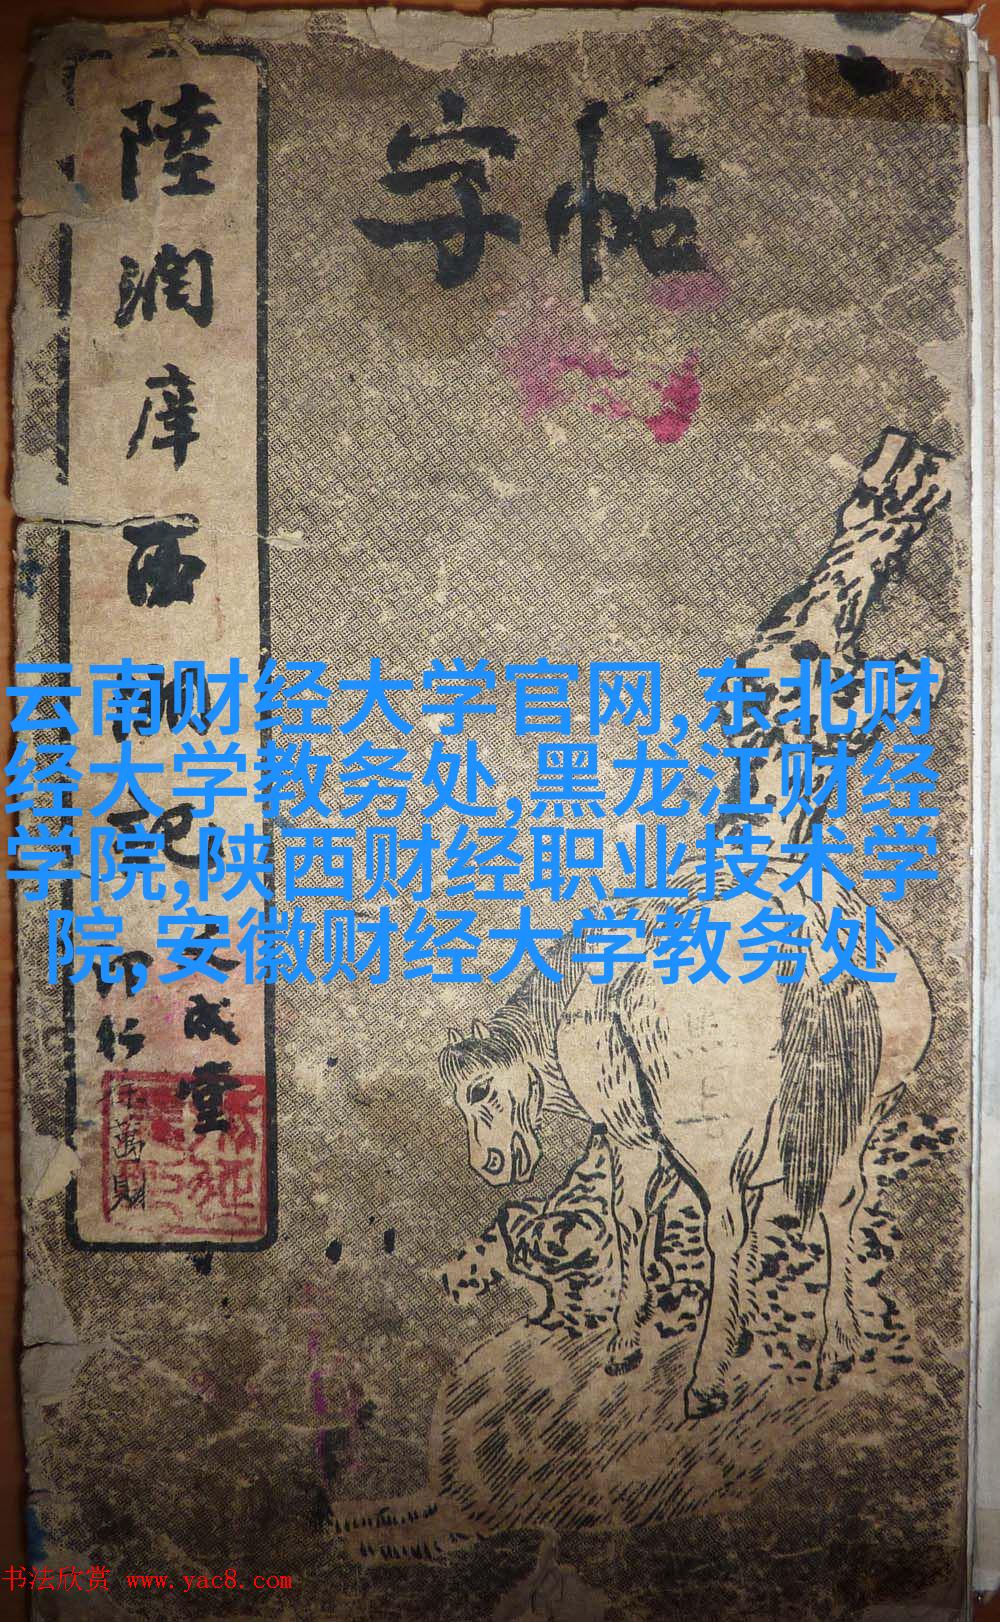 字帖
陸潤庠西湖記
文成堂
印行
萬財
云南财经大学官网,东北财
经大学教务处,黑龙江财经
学院,陕西财经职业技术学
院,安徽财经大学教务处
书法欣赏 www.yac8.com